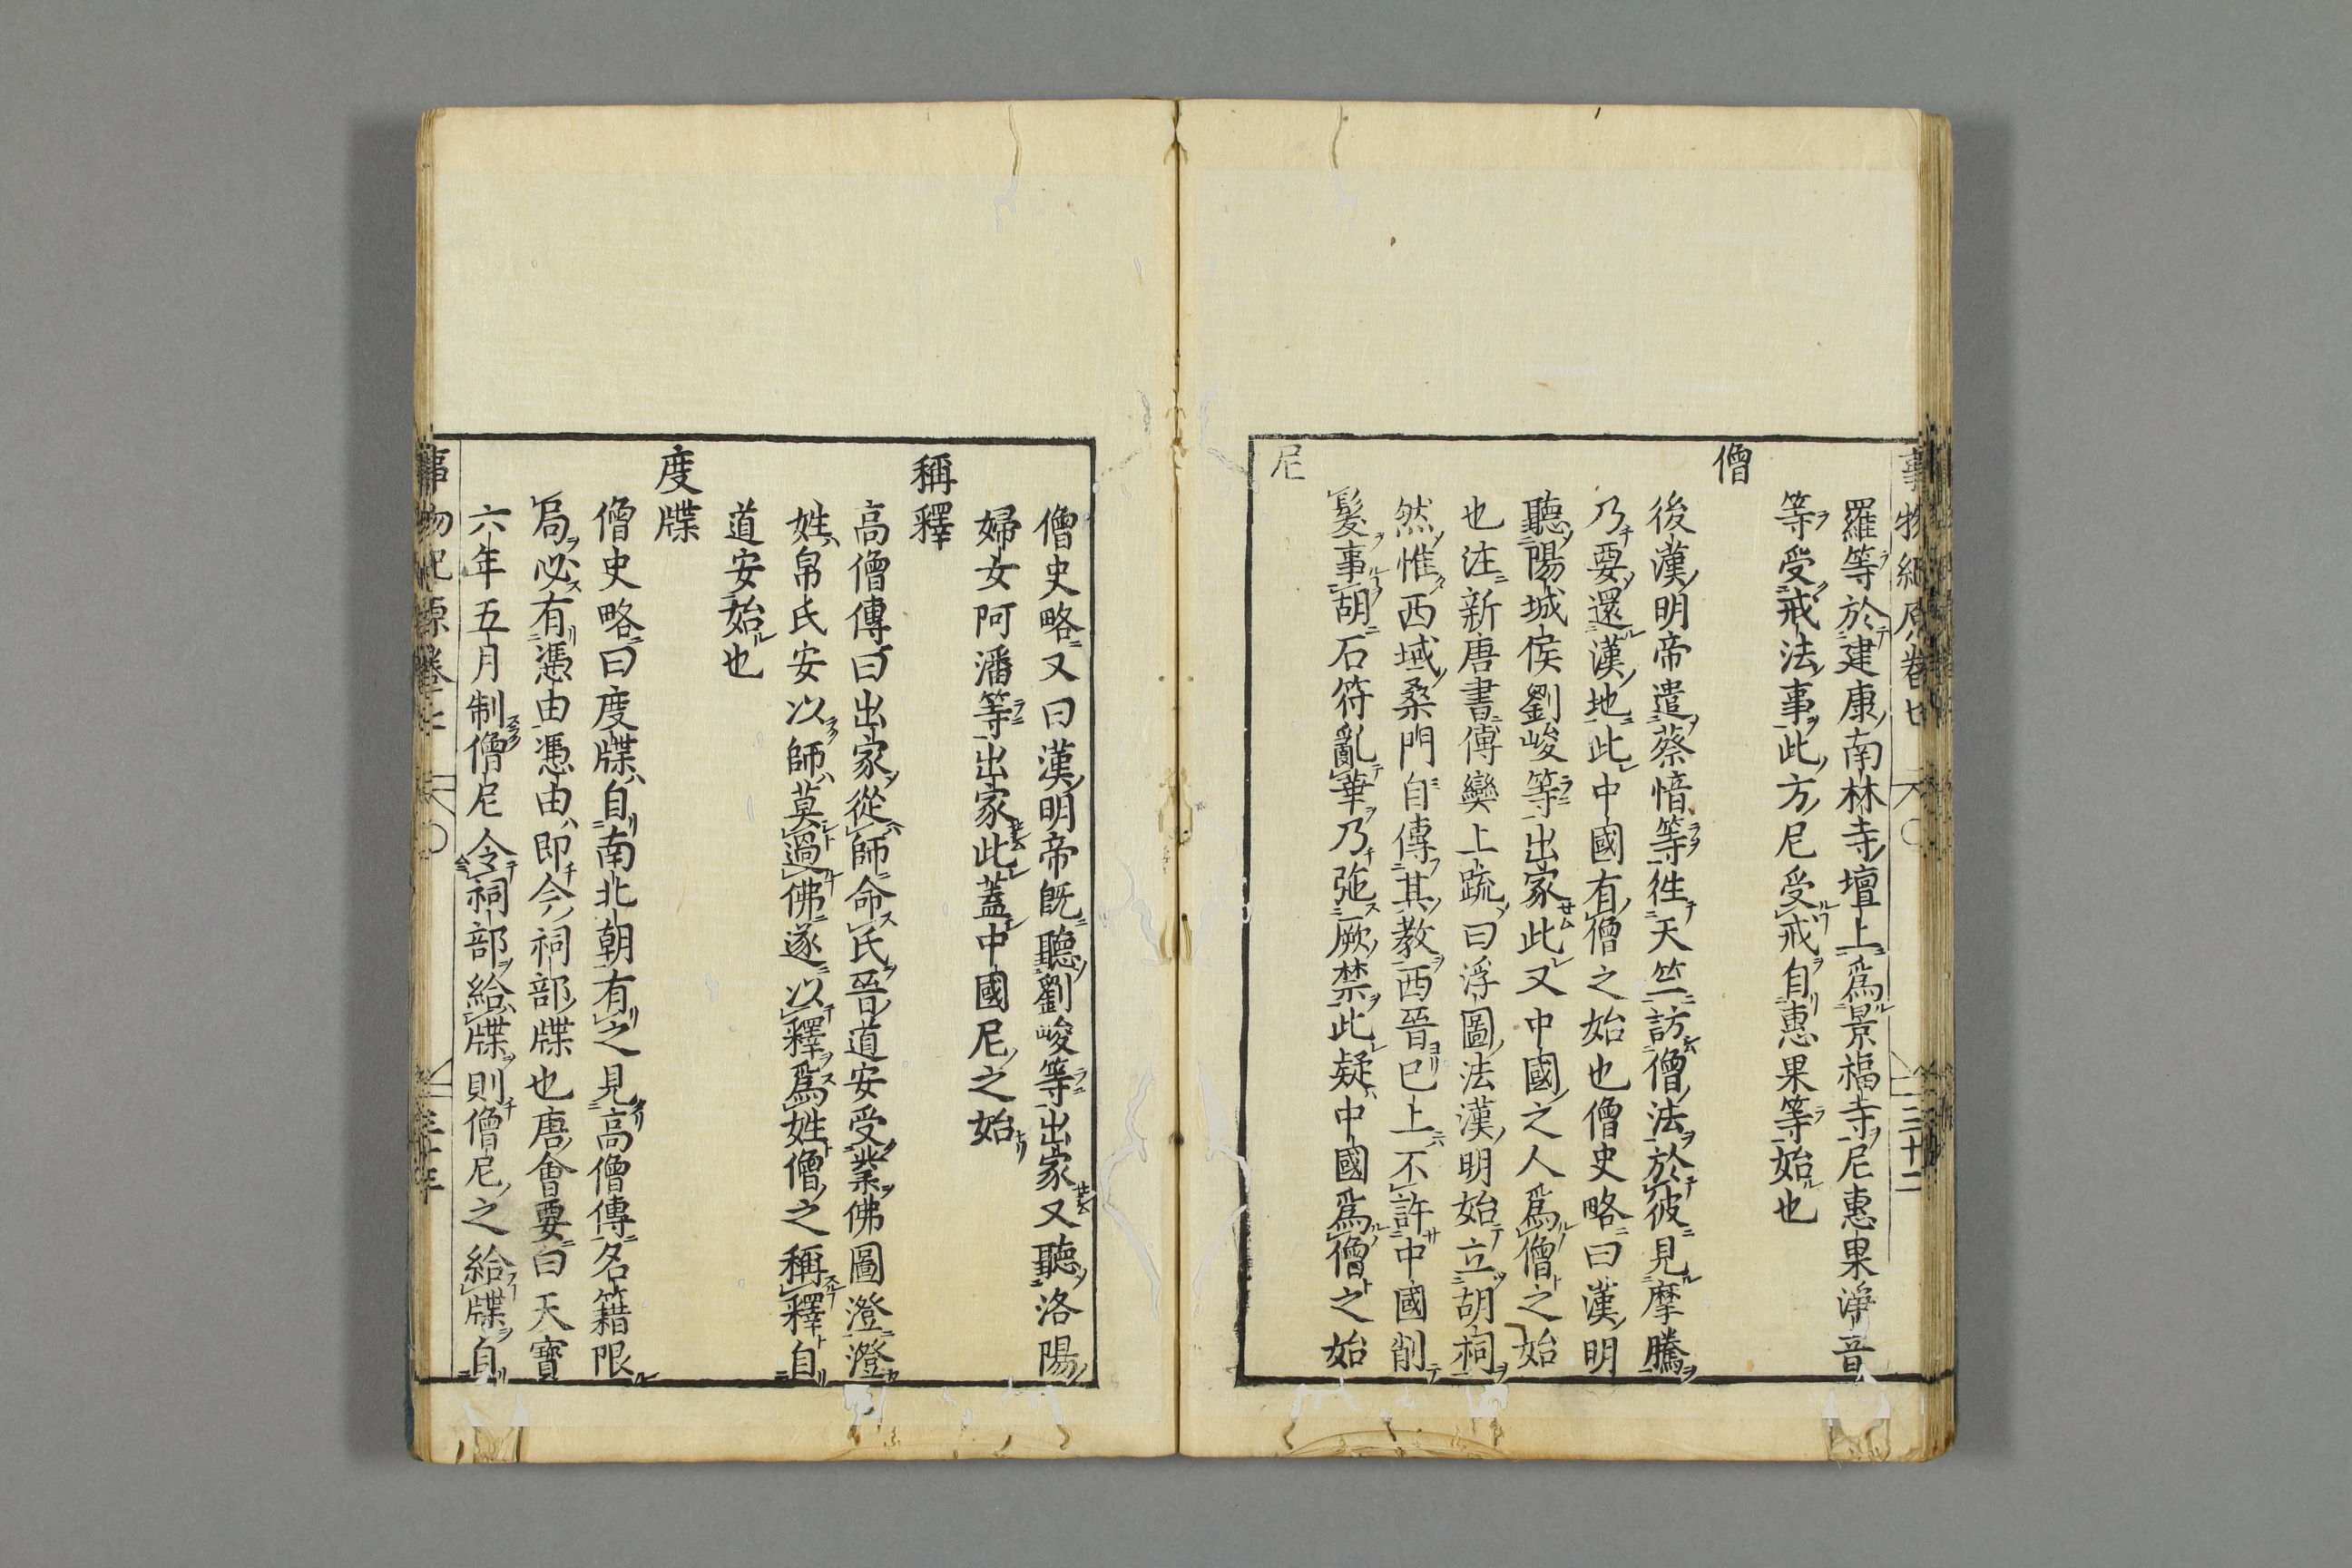 羅等於建康南林寺壇上爲景福寺尼惠果淨音
等受戒法事此方尼受戒自惠果等始也
僧
後漢明帝遣蔡愔等徃天竺訪僧法於彼見摩騰
乃要還漢地此中國有僧之始也僧史略曰漢明
聽陽城侯劉峻等出家此又中國之人爲僧之始
也注新唐書傅奕上疏曰浮圖法漢明始立胡祠
然惟西域桑門自傳其教西晉已上不許中國削
髮事胡石符亂華乃弛厥禁此疑中國爲僧之始
尼
僧史略又曰漢明帝既聽劉峻等出家又聽洛陽
婦女阿潘等出家此蓋中國尼之始
稱釋
高僧傳曰出家從師命氏晉道安受業佛圖澄澄
姓帛氏安以師莫過佛遂以釋爲姓僧之稱釋自
道安始也
度牒
僧史略曰度牒自南北朝有之見高僧傳名籍限
局必有憑由憑由即今祠部牒也唐會要曰天寶
六年五月制僧尼令祠部給牒則僧尼之給牒自